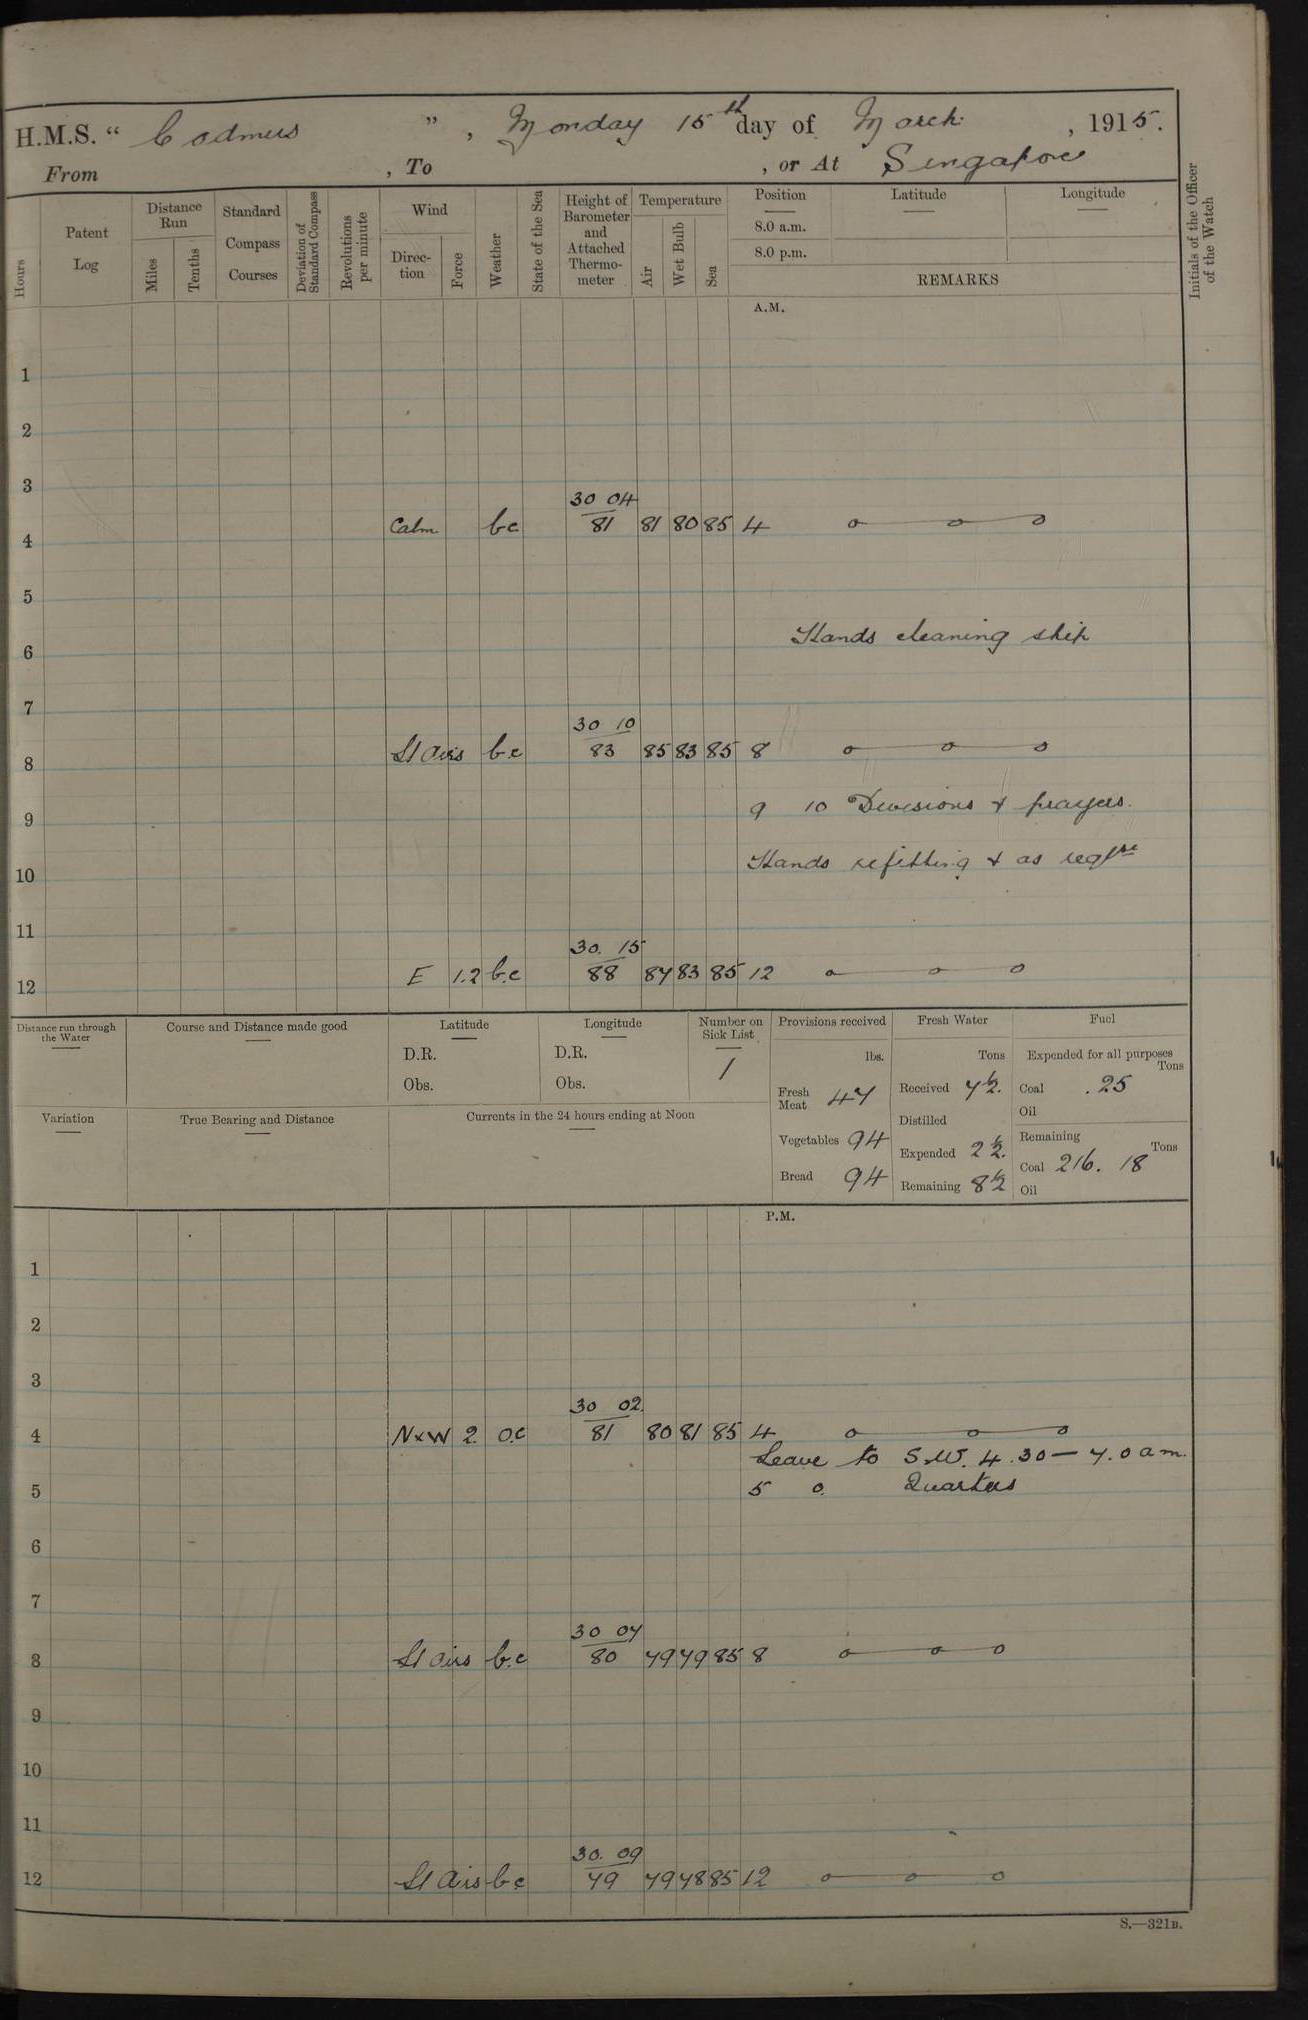 H.M.S. “ Cadmus ” , Monday 15th day of March , 1915.
From , To , or At Singapore
Hours
Patent Log
Distance Run
Miles
Tenths
Standard Compass Courses
Deviation of Standard Compass
Revolutions per minute
Wind
Direc-tion
Force
Weather
State of the Sea
Height of Barometer and Attached Thermo-meter
Temperature
Air
Wet Bulb
Sea
Position
8.0 a.m.
8.0 p.m.
Latitude
Longitude
REMARKS
Initials of the Officer of the Watch
A.M.
1
2
3
30 04
4 Calm bc 81 81 80 85 4
5
Hands cleaning ship
6
7
30 10
8 Lt airs b.c 83 85 83 85 8
9 9 10 Divisions & prayers.
10 Hands refitting & as reqre
11
30. 15
12 E 1.2 b.c 88 87 83 85 12
Distance run through the Water
Course and Distance made good
Latitude
D.R.
Obs.
Longitude
D.R.
Obs.
Number on Sick List
1
Provisions received
lbs.
Fresh Meat 47
Vegetables 94
Bread 94
Fresh Water
Tons
Received 7½.
Distilled
Expended 2½.
Remaining 8½
Fuel
Expended for all purposes
Tons
Coal .25
Oil
Remaining
Tons
Coal 216. 18
Oil
Variation
True Bearing and Distance
Currents in the 24 hours ending at Noon
P.M.
1
2
3
30 02.
4 NxW 2 o.c 81 80 81 85 4
Leave to S.W. 4.30 — 7.0 am.
5 5 0. Quarters
6
7
30 07
8 Lt airs b.c 80 79 79 85 8
9
10
11
30. 09
12 Lt airs b.c 79 79 78 85 12
S.—321B.